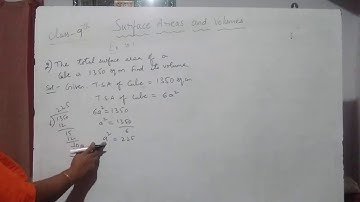 class-9th
Surface Areas and volumes
2) The total surface area of a
cube is 1350 sq.m find its volume
Sol:- Given T.S.A of cube = 1350 sq.m
T.S.A of cube = 6a²
6a² = 1350
a² = 1350
6
a² = 225
225
6) 1350
12
15
12